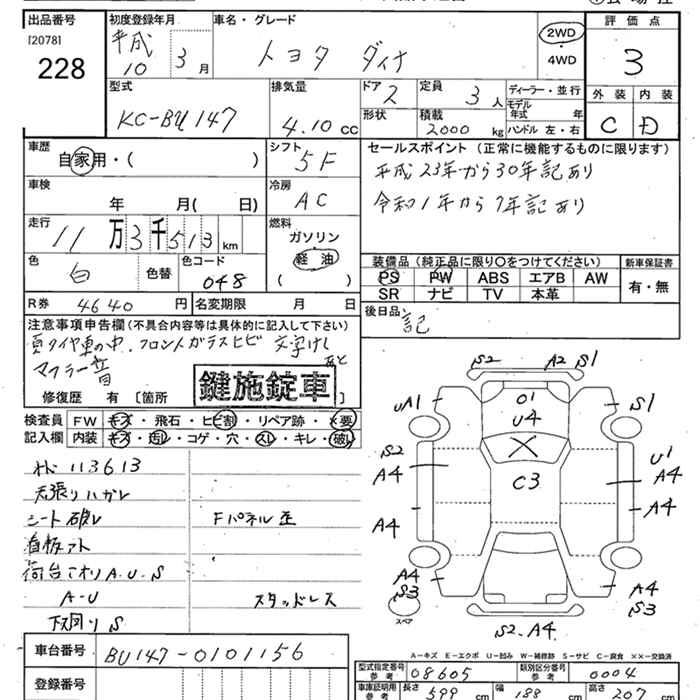 出品番号 初度登録年月 車名・グレード 評価点
[2078] 平成
228 10 3月 トヨタ ダイナ 2WD・4WD 3
型式 排気量 ドア 定員 ディーラー・並行 外装 内装
KC-BU147 4.10cc 2 3人 モデル年式 年
形状 積載 2000kg ハンドル 左・右 C D
車歴 シフト セールスポイント(正常に機能するものに限ります)
自家用・( ) 5F 平成23年から30年記あり
車検 冷房 令和1年から7年記あり
年 月( 日) AC
走行 燃料
11万3千513km ガソリン
軽油
装備品(純正品に限り○をつけてください) 新車保証書
色 色替 色コード PS PW ABS エアB AW 有・無
白 048 ( ) SR ナビ TV 本革
R券 4640円 名変期限 月 日 後日品:
記
注意事項申告欄(不具合内容等は具体的に記入して下さい)
夏タイヤ車の中、フロントガラスヒビ 文字けしあと
マフラー音
鍵施錠車
修復歴 有 [箇所
検査員 FW キズ・飛石・ヒビ割・リペア跡・×要
記入欄 内装 キズ・汚レ・コゲ・穴・スレ・キレ・破レ
113613
天張りハガレ
シート破レ Fパネル歪
看板アト
荷台サオリA.U.S
A-U スタッドレス
下回りS
S2 A2 S1
UA1 01 S1
U4
S2 U1
A4 C3 A4
A4 A4
A4 A4
S3 S3
スペア
S2.A4
A→キズ E→エクボ U→凹み W→補修跡 S→サビ C→腐食 ××→交換済
車台番号 BU147-0101156
型式指定番号 参考 08605 類別区分番号 参考 0004
登録番号 車庫証明用 参考 長さ 599cm 幅 188cm 高さ 207cm